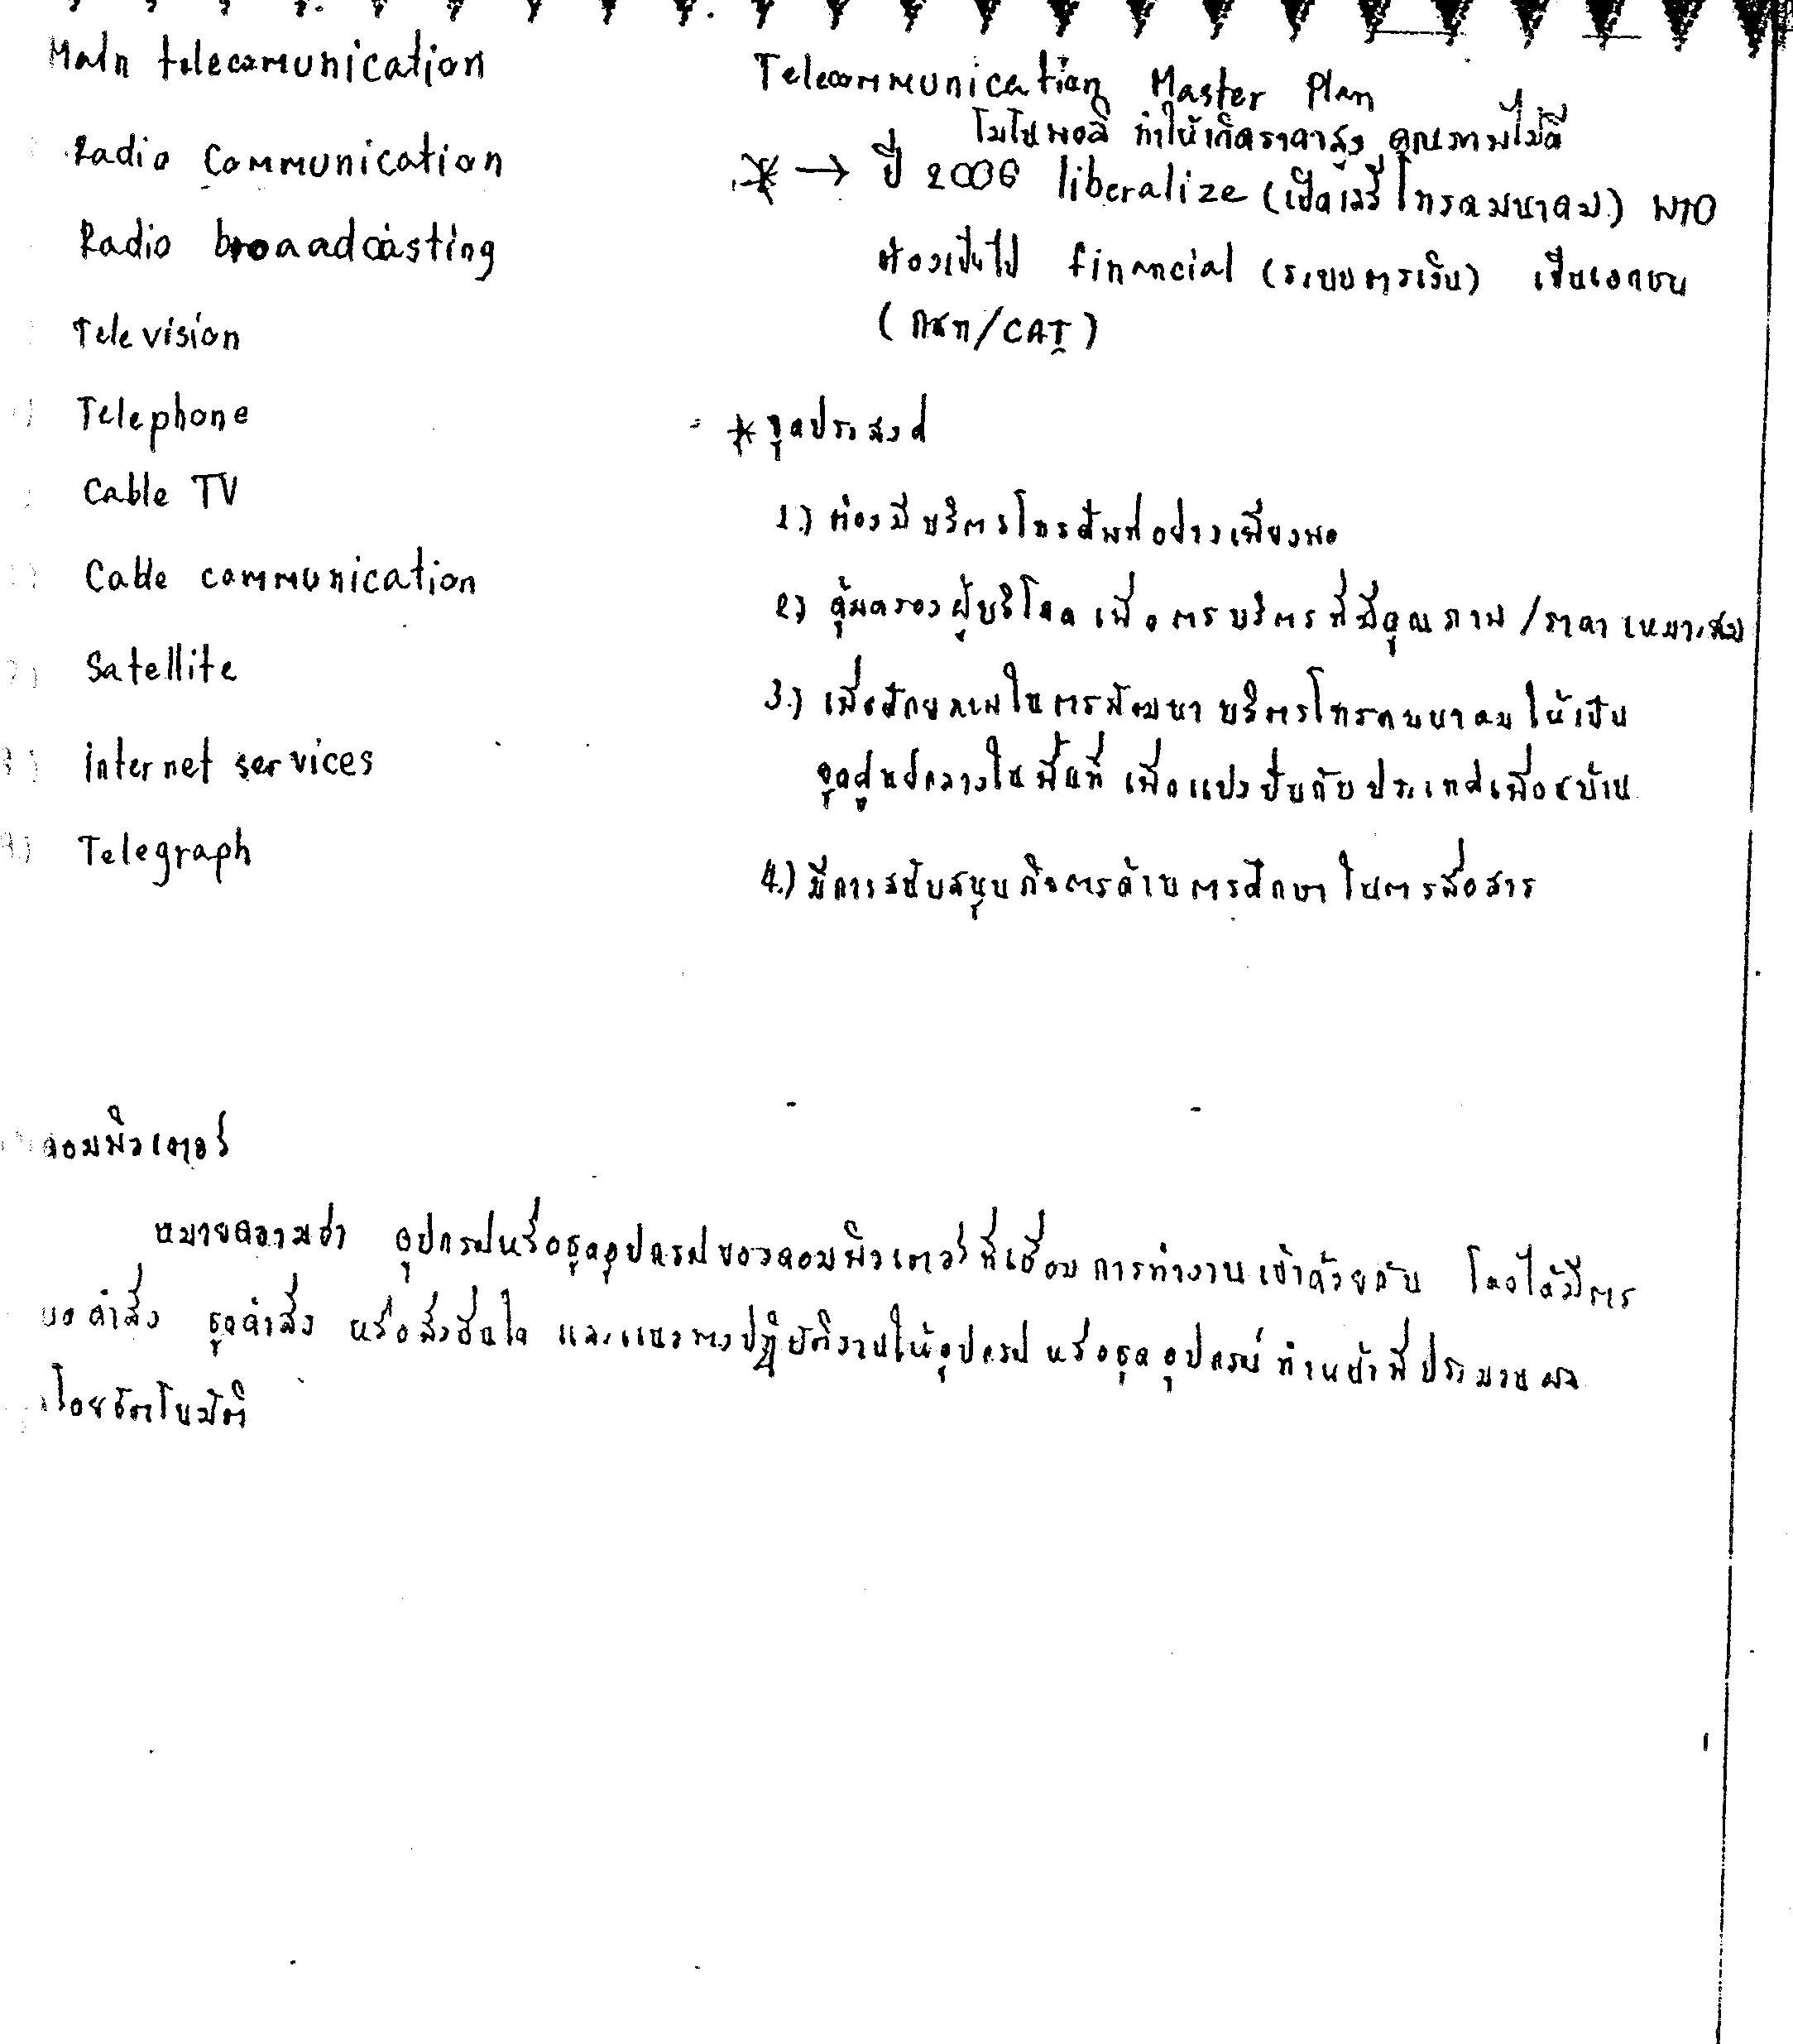 Main telecomunication
Radio Communication
Radio broaadcasting
Television
Telephone
Cable TV
Cable communication
Satellite
internet services
Telegraph
Telecommunication Master Plan
โมโนพอลี ทำให้เกิดราคาสูง คุณภาพไม่ดี
* → ปี 2006 liberalize (เปิดเสรีโทรคมนาคม) WTO
ต้องเป็นไป financial (ระบบการเงิน) เป็นเอกชน
(กสท/CAT)
* จุดประสงค์
1.) ต้องมีบริการโทรศัพท์อย่างเพียงพอ
2.) คุ้มครองผู้บริโภค เพื่อการบริการที่มีคุณภาพ/ราคาเหมาะสม
3.) เพื่อศักยภาพในการพัฒนาบริการโทรคมนาคมให้เป็น
จุดศูนย์กลางในพื้นที่ เพื่อแบ่งปันกับประเทศเพื่อนบ้าน
4.) มีการสนับสนุนกิจการด้านการศึกษาในการสื่อสาร
คอมพิวเตอร์
หมายความว่า อุปกรณ์หรือชุดอุปกรณ์ของคอมพิวเตอร์ที่เชื่อมการทำงานเข้าด้วยกัน โดยได้มีการ
คำสั่ง ชุดคำสั่ง หรือสิ่งอื่นใด และแนวทางปฏิบัติงานให้อุปกรณ์ หรือชุดอุปกรณ์ ทำหน้าที่ประมวนผล
โดยอัตโนมัติ